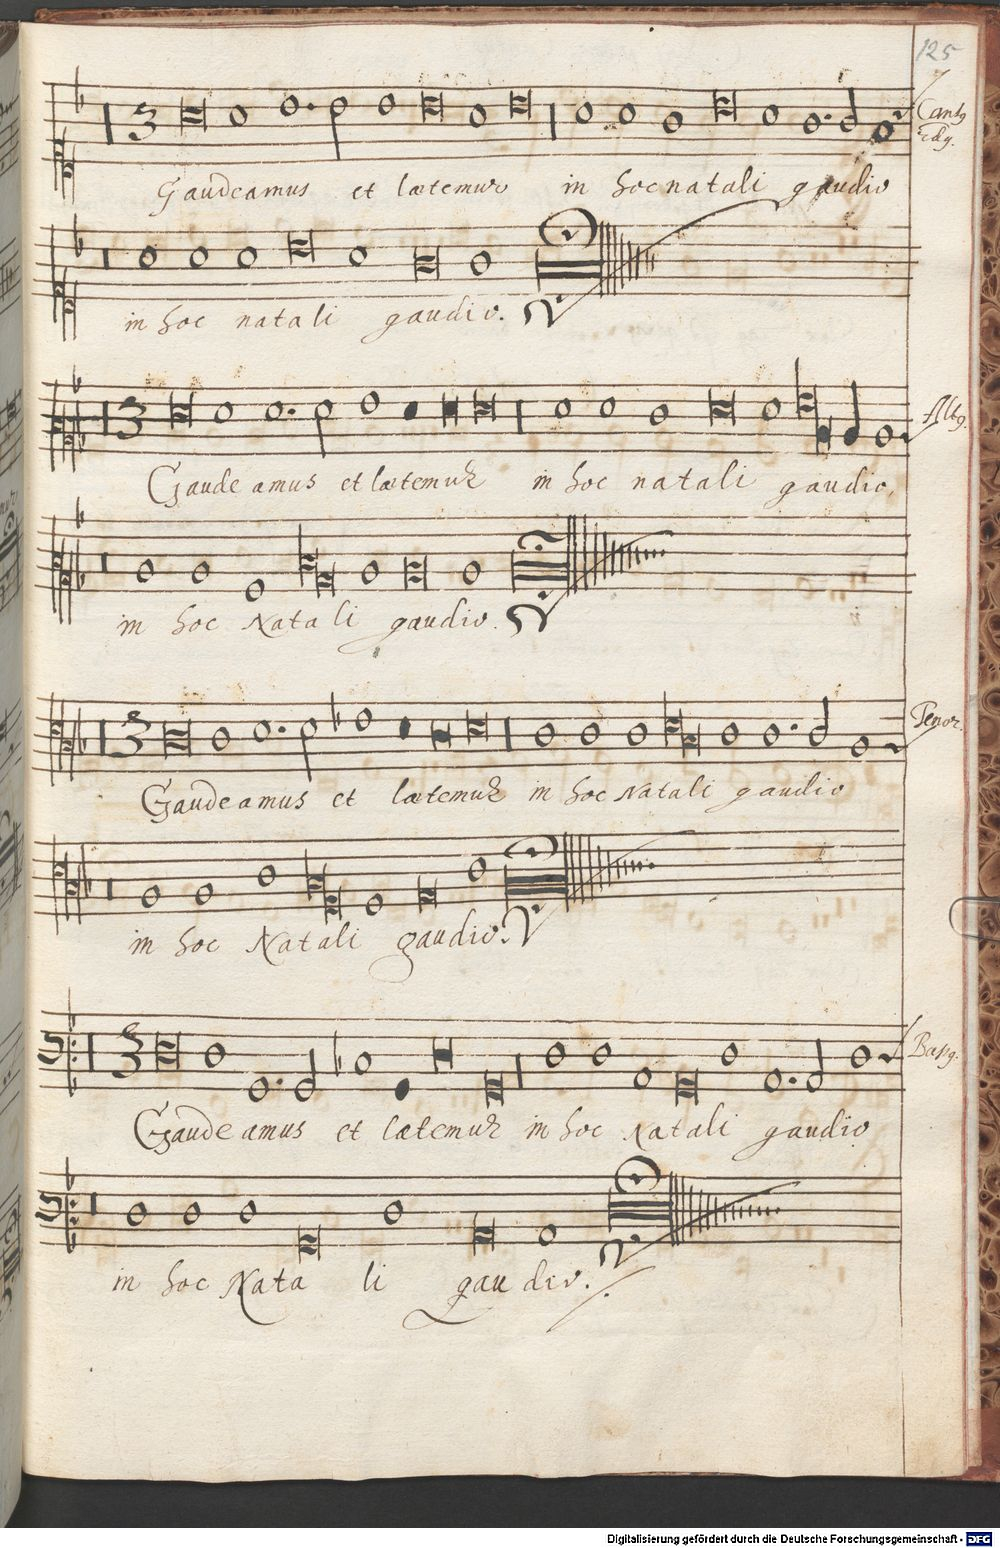 125
Cantg
Gaudeamus et lætemur in hoc natali gaudio
in hoc natali gaudio.
Altg.
Gaudeamus et lætemur in hoc natali gaudio,
in hoc Natali gaudio.
Tenor.
Gaudeamus et lætemur in hoc Natali gaudio
in hoc Natali gaudio.
Bassg.
Gaudeamus et lætemur in hoc Natali gaudio
in hoc Natali gaudio.
Digitalisierung gefördert durch die Deutsche Forschungsgemeinschaft - DFG